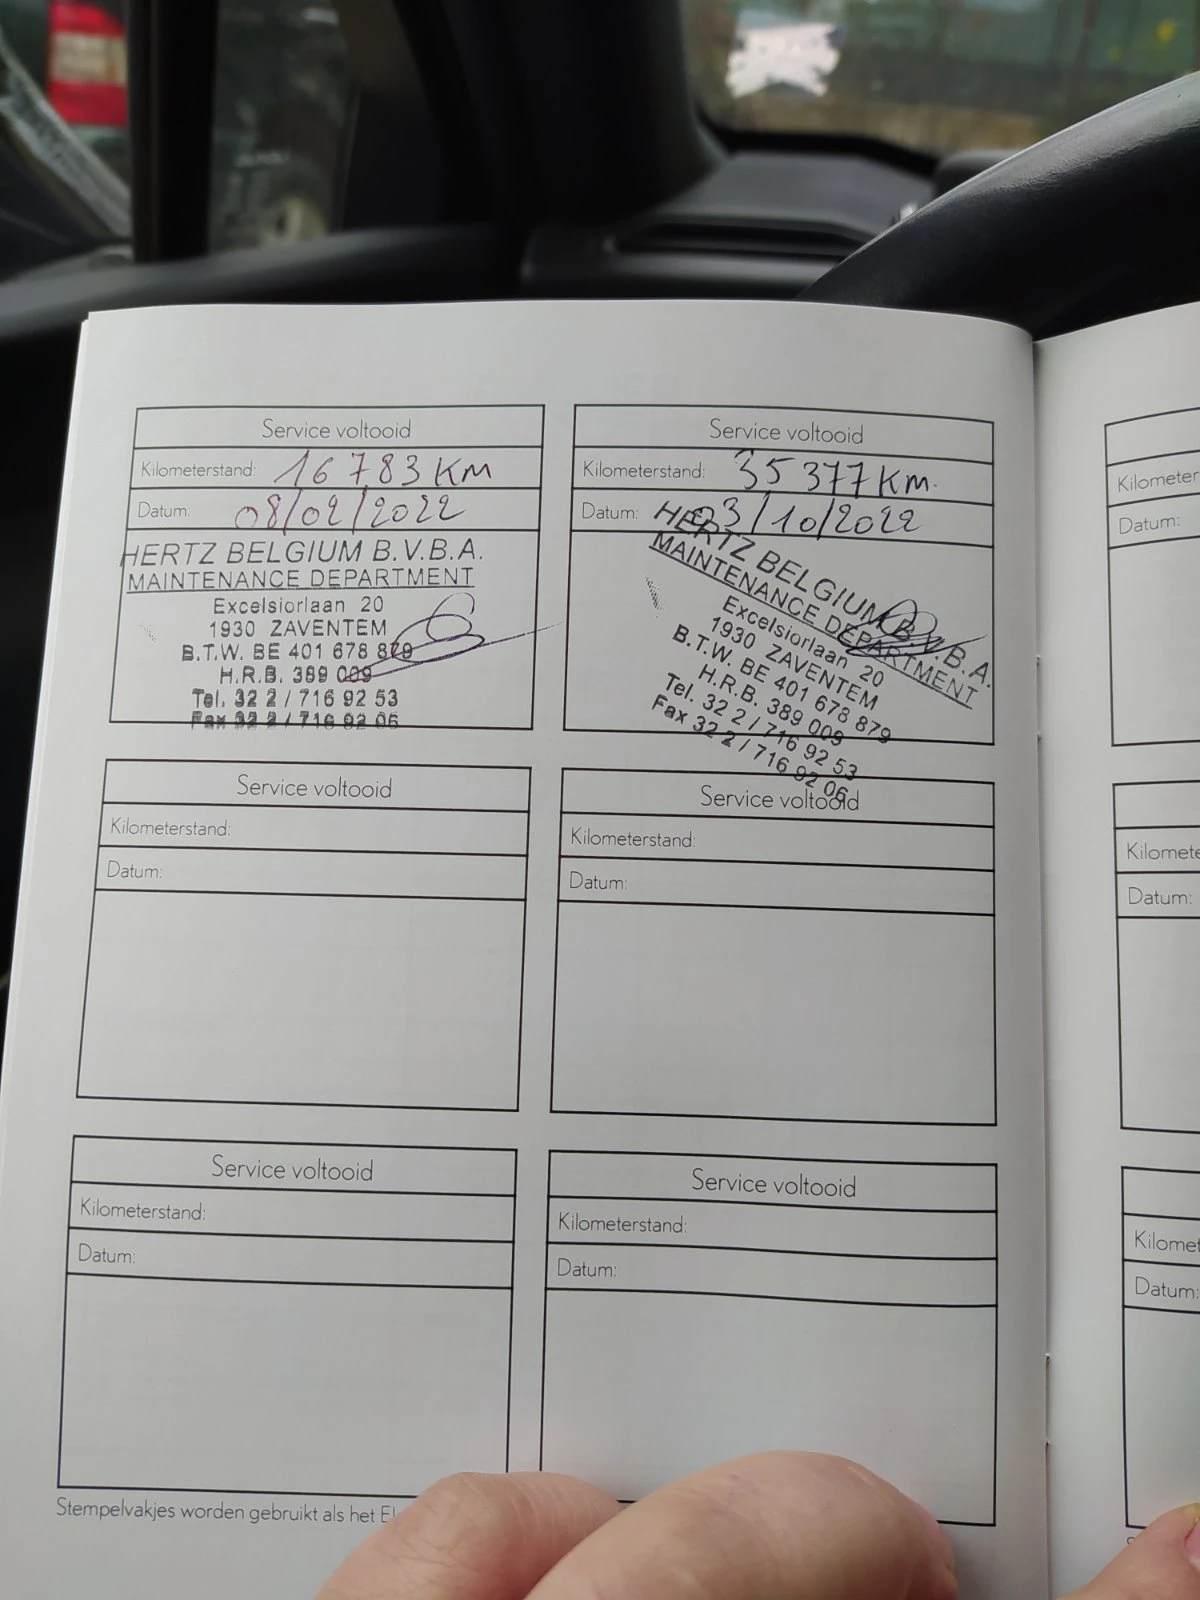 Service voltooid
Kilometerstand: 16 783 KM
Datum: 08/02/2022
HERTZ BELGIUM B.V.B.A.
MAINTENANCE DEPARTMENT
Excelsiorlaan 20
1930 ZAVENTEM
B.T.W. BE 401 678 879
H.R.B. 389 009
Tel. 32 2 / 716 92 53
Fax 32 2 / 716 92 06
Service voltooid
Kilometerstand: 35 377 KM.
Datum: 03/10/2022
HERTZ BELGIUM B.V.B.A.
MAINTENANCE DEPARTMENT
Excelsiorlaan 20
1930 ZAVENTEM
B.T.W. BE 401 678 879
H.R.B. 389 009
Tel. 32 2 / 716 92 53
Fax 32 2 / 716 92 06
Service voltooid
Kilometerstand:
Datum:
Service voltooid
Kilometerstand:
Datum:
Service voltooid
Kilometerstand:
Datum:
Service voltooid
Kilometerstand:
Datum:
Stempelvakjes worden gebruikt als het
Kilometer
Datum:
Kilomete
Datum:
Kilomet
Datum: